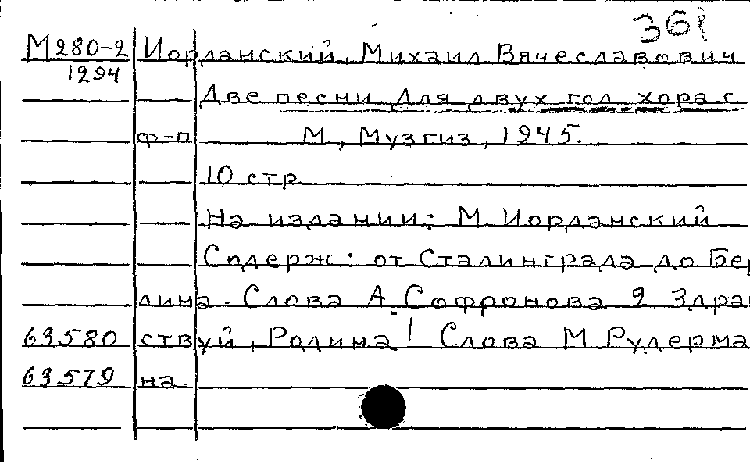 361
М280-2 Иорданский, Михаил Вячеславович
1294
Две песни для двух гол хора с
ф-п М, Музгиз, 1945.
10 стр
На издании: М. Иорданский
Содерж: от Сталинграда до Бер
лина. Слова А. Софронова 2 Здрав
63580 ствуй, Родина! Слова М Рудерма
63579 на